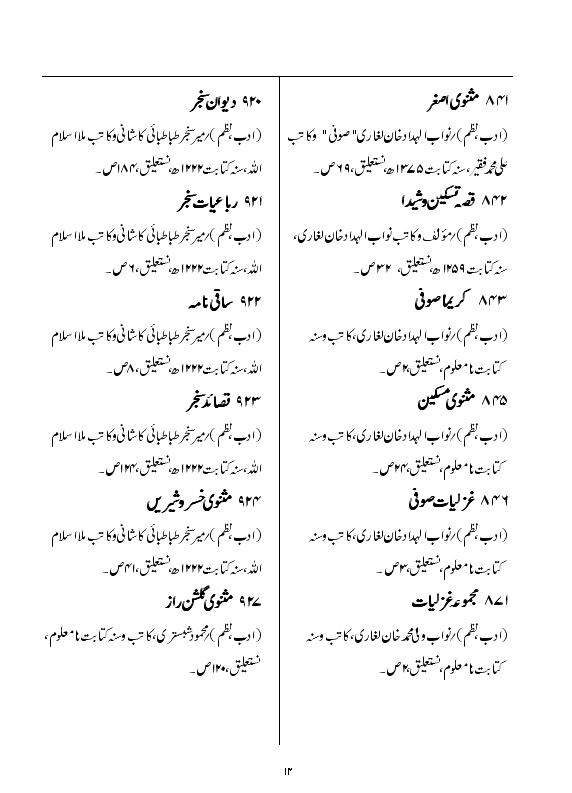 ۸۴۱ مثنوی اصغر
(ادب،نظم)/نواب الہداد خان لغاری" صوفی" وکاتب
علی محمد فقیر،سنہ کتابت ۱۲۷۵ھ،نستعلیق،۶۹ص۔
۸۴۲ قصہ تسکین وشیدا
(ادب،نظم)/مؤلف وکاتب نواب الہداد خان لغاری،
سنہ کتابت ۱۲۵۹ھ،نستعلیق، ۳۲ص۔
۸۴۳ کریما صوفی
(ادب،نظم)/نواب الہداد خان لغاری،کاتب وسنہ
کتابت نامعلوم،نستعلیق،۲ص۔
۸۴۵ مثنوی مسکین
(ادب،نظم)/نواب الہداد خان لغاری،کاتب وسنہ
کتابت نامعلوم،نستعلیق،۲۴ص۔
۸۴۶ غزلیات صوفی
(ادب،نظم)/نواب الہداد خان لغاری،کاتب وسنہ
کتابت نامعلوم،نستعلیق،۳ص۔
۸۷۱ مجموعہ غزلیات
(ادب،نظم)/نواب ولی محمد خان لغاری،کاتب وسنہ
کتابت نامعلوم،نستعلیق،۲ص۔
۹۲۰ دیوان سنجر
(ادب،نظم)/میر سنجر طباطبائی کاشانی وکاتب ملا اسلام
اللہ،سنہ کتابت ۱۲۲۲ھ،نستعلیق،۱۸۴ص۔
۹۲۱ رباعیات سنجر
(ادب،نظم)/میر سنجر طباطبائی کاشانی وکاتب ملا اسلام
اللہ،سنہ کتابت ۱۲۲۲ھ،نستعلیق،۶ص۔
۹۲۲ ساقی نامہ
(ادب،نظم)/میر سنجر طباطبائی کاشانی وکاتب ملا اسلام
اللہ،سنہ کتابت ۱۲۲۲ھ،نستعلیق،۸ص۔
۹۲۳ قصائد سنجر
(ادب،نظم)/میر سنجر طباطبائی کاشانی وکاتب ملا اسلام
اللہ،سنہ کتابت ۱۲۲۲ھ،نستعلیق،۱۲۴ص۔
۹۲۴ مثنوی خسرو شیریں
(ادب،نظم)/میر سنجر طباطبائی کاشانی وکاتب ملا اسلام
اللہ،سنہ کتابت ۱۲۲۲ھ،نستعلیق،۴۱ص۔
۹۲۷ مثنوی گلشن راز
(ادب،نظم)/محمود شبستری،کاتب وسنہ کتابت نامعلوم،
نستعلیق،۱۲۰ص۔
۱۳